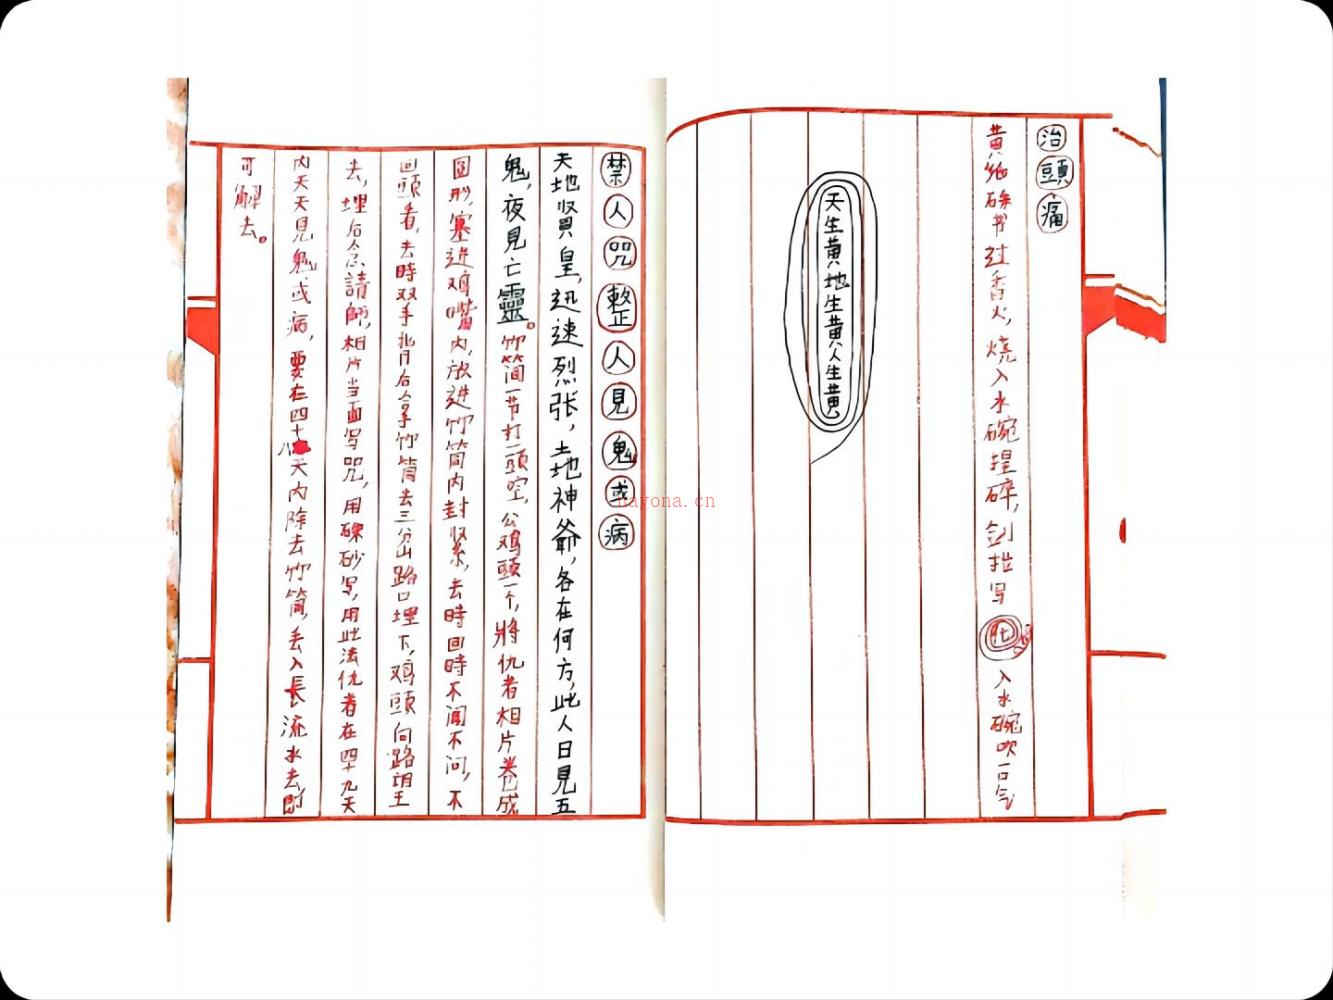 治頭痛
黄纸硃书过香火，烧入水碗捏碎，剑指写
入水碗吹一口气
天生黄地生黄人生黄
禁人咒整人見鬼或病
天地賢皇，迅速烈张，土地神爺，各在何方，此人日見五
鬼，夜見亡靈。竹筒一节打一頭空，公鸡頭一个，將仇者相片卷成
圆形，塞进鸡嘴内，放进竹筒内封紧，去時回時不闻不问，不
回頭看，去時双手背后拿竹筒去三分山路口埋下，鸡頭向路胡王
去，埋后念請師，相片当面写咒，用硃砂写，用此法仇者在四十九天
内天天見鬼或病，要在四十八天内除去竹筒，丢入長流水去即
可解去。
nayona.cn